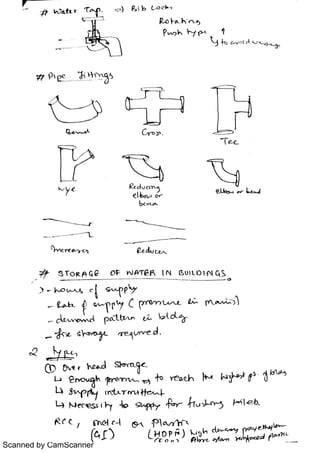 # Water Tap. => Bib Cock,
Rotating
Push type
to avoid
# Pipe Fittings
Bend
Cross.
Tee
Wye
Reducing
elbow or
bend
elbow or bend
Increaser
Reducer
# STORAGE OF WATER IN BUILDINGS
- hours of supply
- Rate of supply (pressure in mains)
- demand pattern in bldg
- fire storage required.
2 types
① Over head Storage
↳ Enough pressure to reach the highest pt. of bldg
↳ Supply intermittent
↳ Necessity to supply for flushing
RCC, or Plastic
(GI) (HDPE) high density polyethylene
fibre glass reinforced plastic
Scanned by CamScanner